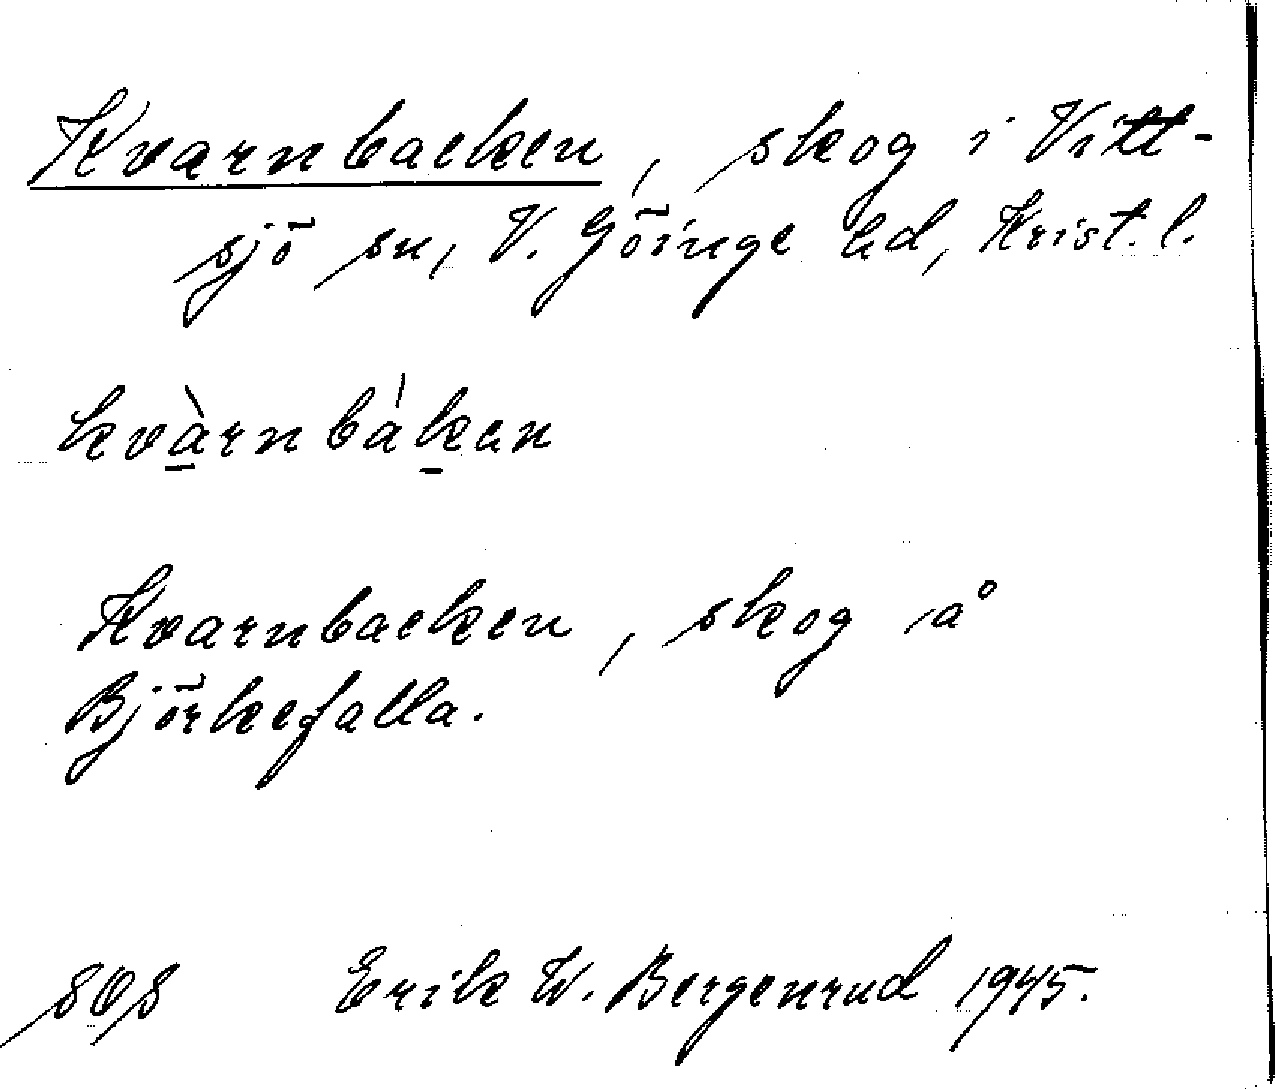 Kvarnbacken, skog i Vitt-
sjö sn, V. Göinge hd, Krist. l.
kvà̠rnbàk̠an
Kvarnbacken, skog å
Björkefalla.
SOS Erik W. Bergenrud 1945.